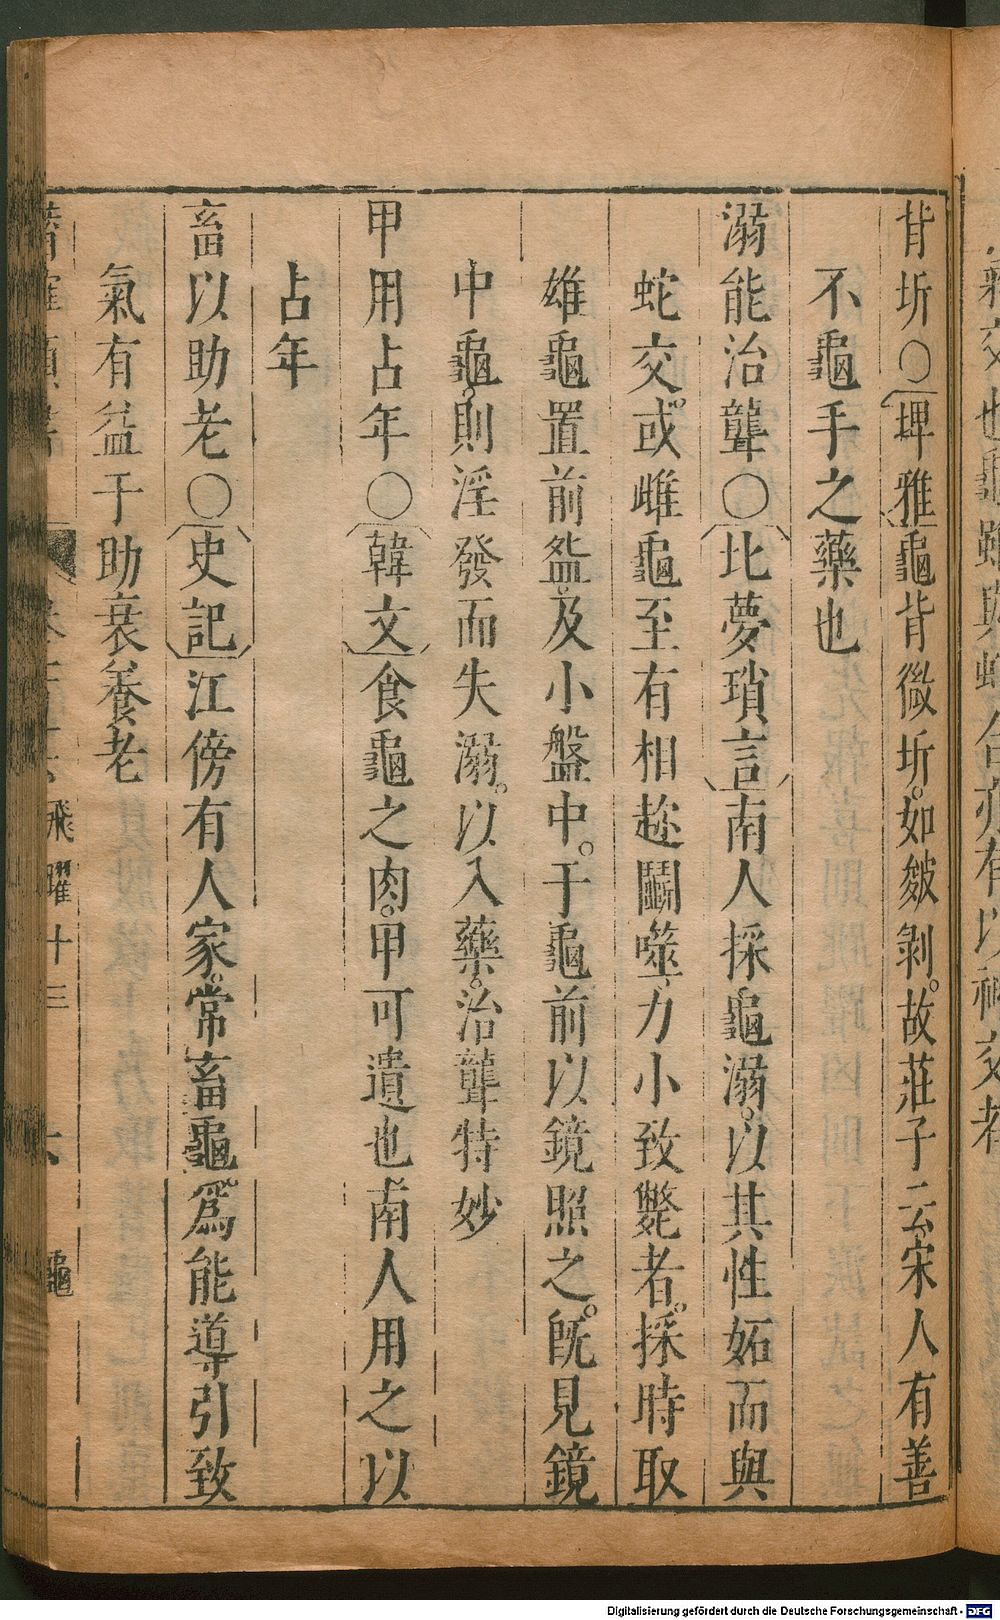 背坼〇埤雅龜背微坼。如皴剝。故莊子云宋人有善
不龜手之藥也
溺能治聾〇北夢瑣言南人採龜溺。以其性妬而與
蛇交。或雌龜至有相趂鬬噬、力小致斃者。採時取
雄龜置前瓫。及小盤中。于龜前以鏡照之。旣見鏡
中龜、則淫發而失溺。以入藥。治聾特妙
甲用占年〇韓文食龜之肉。甲可遺也南人用之以
占年
畜以助老〇史記江傍有人家。常畜龜爲能導引致
氣有益于助衰養老
飛躍十三
六
龜
Digitalisierung gefördert durch die Deutsche Forschungsgemeinschaft - DFG